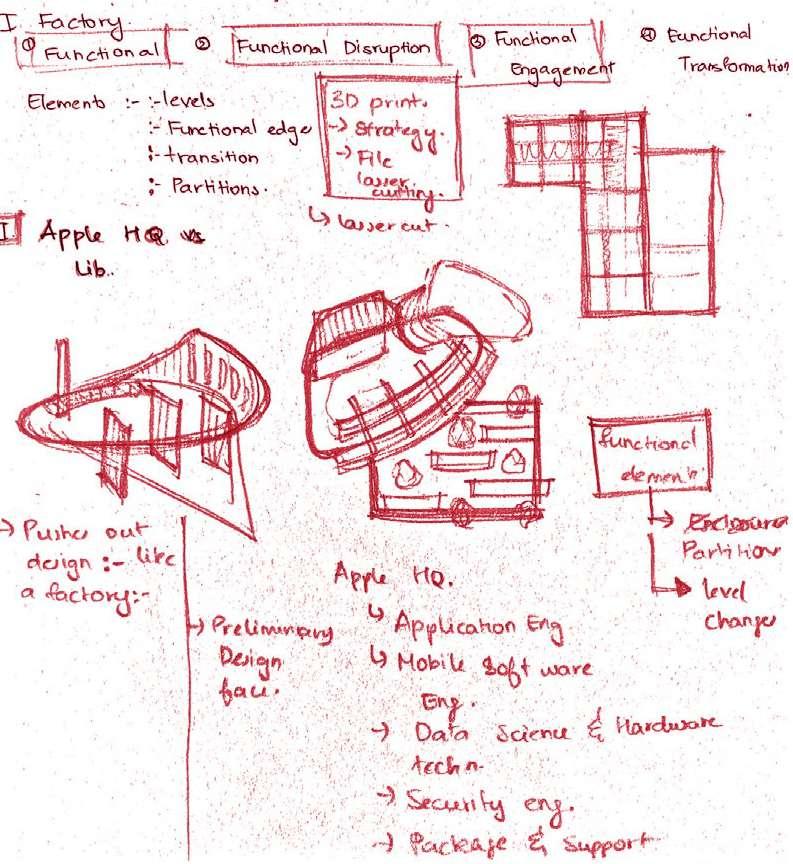 I. Factory.
① Functional
② Functional Disruption
③ Functional
Engagement
④ Functional
Transformation
Element :- :-levels
:- Functional edge
:- transition
:- Partitions.
3D print.
→ Strategy.
→ File
lasser
cutting.
↳ lasser cut.
I Apple HQ vs
Lib..
functional
→
Partition
→ level
changes
→ Pushes out
design :- like
a factory:-
→ Preliminary
Design
Apple HQ.
↳ Application Eng
↳ Mobile Soft ware
Eng.
→ Data Science & Hardware
techn.
→ Security eng.
→ Package & Support